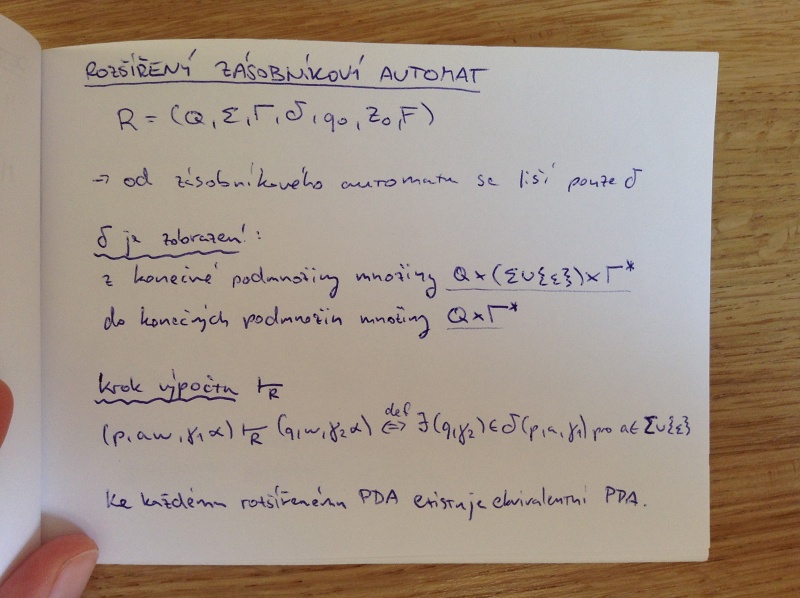 ROZŠÍŘENÝ ZÁSOBNÍKOVÝ AUTOMAT
R = (Q, Σ, Γ, δ, q₀, Z₀, F)
→ od zásobníkového automatu se liší pouze δ
δ je zobrazení:
z konečné podmnožiny množiny Q×(Σ∪{ε})×Γ*
do konečných podmnožin množiny Q×Γ*
Krok výpočtu ⊢R
(p, aw, γ₁α) ⊢R (q, w, γ₂α) def⟺ ∃(q, γ₂) ∈ δ(p, a, γ₁) pro a ∈ Σ∪{ε}
Ke každému rozšířenému PDA existuje ekvivalentní PDA.